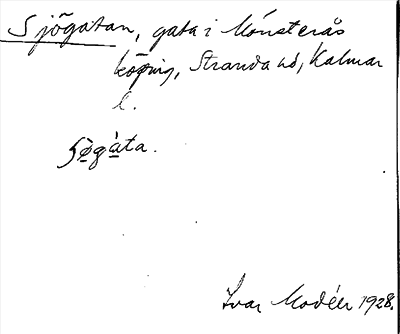 Sjögatan, gata i Mönsterås
köping, Stranda hd, Kalmar
l.
Ivar Modéer 1928.